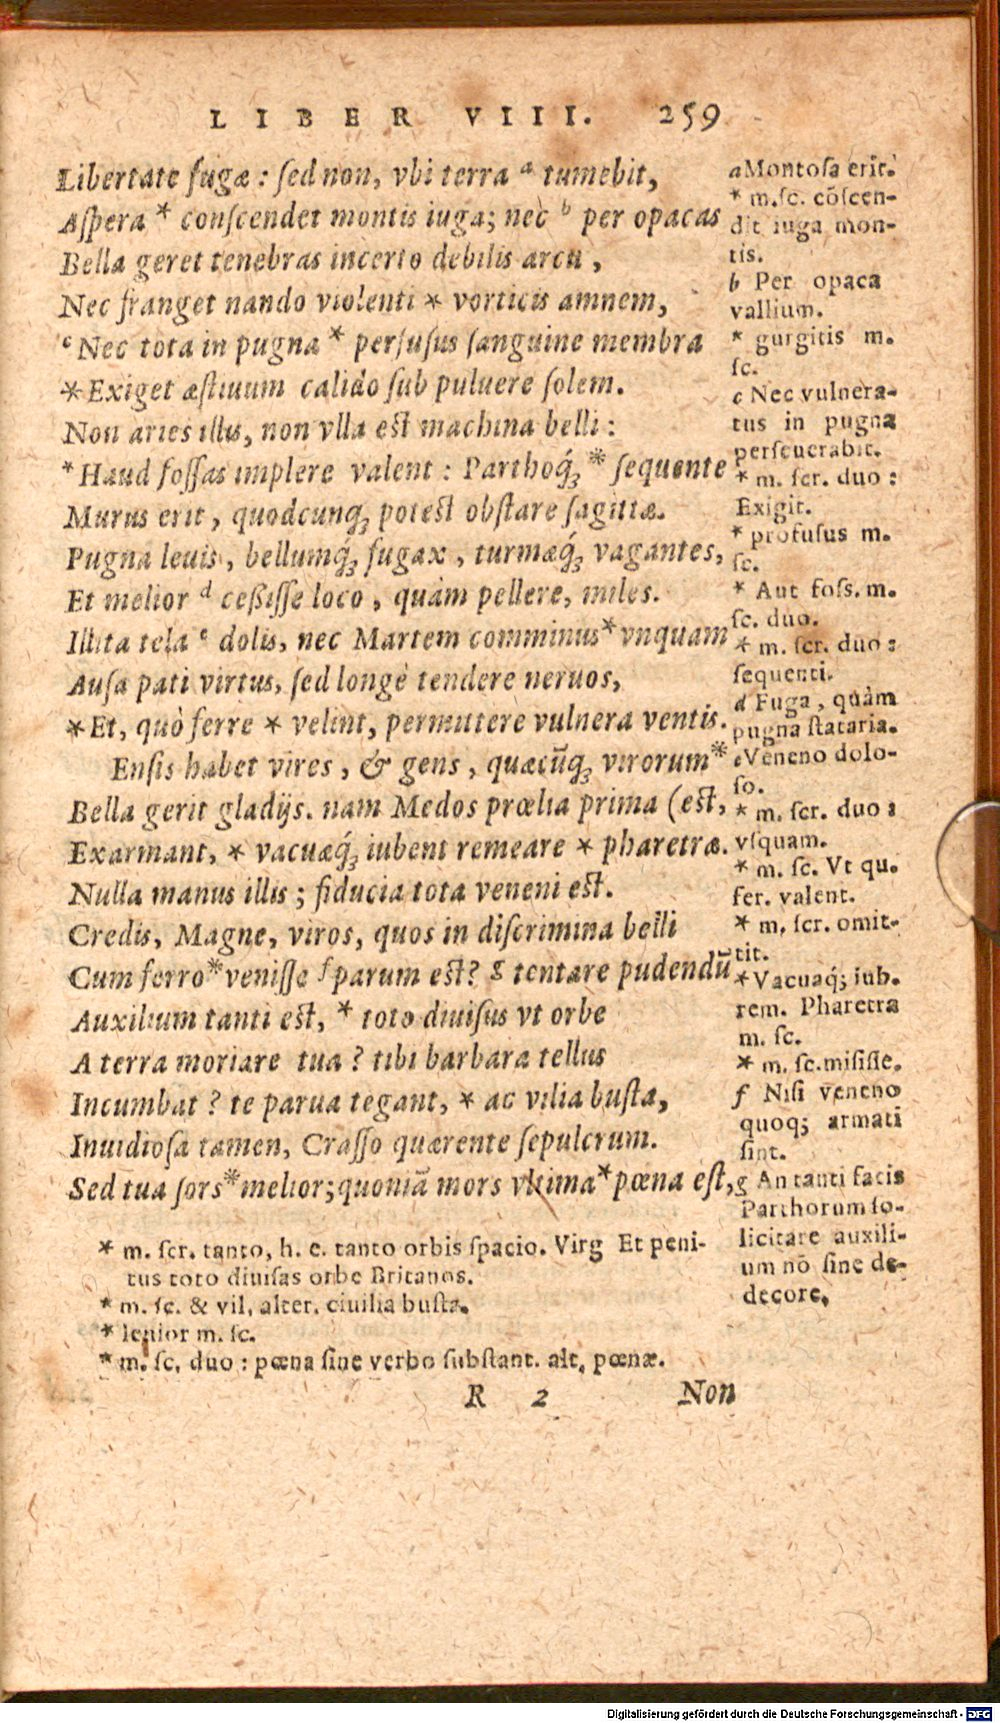 LIBER VIII. 259
Libertate fugæ : ſed non, vbi terra a tumebit,
Aſpera * conſcendet montis iuga; nec b per opacas
Bella geret tenebras incerto debilis arcu ,
Nec franget nando violenti * vorticis amnem,
c Nec tota in pugna * perfuſus ſanguine membra
* Exiget æſtiuum calido ſub puluere ſolem.
Non aries illis, non vlla eſt machina belli :
* Haud foſſas implere valent : Parthoq́ꝫ * ſequente
Murus erit , quodcunqꝫ poteſt obſtare ſagittæ.
Pugna leuis , bellumq́ꝫ fugax , turmæq́ꝫ vagantes,
Et melior d ceßiſſe loco , quàm pellere, miles.
Illita tela e dolis, nec Martem comminus * vnquam
Auſa pati virtus, ſed longè tendere neruos,
* Et, quò ferre * velint, permittere vulnera ventis.
Enſis habet vires , & gens , quæcūqꝫ virorum *
Bella gerit gladijs. nam Medos prœlia prima (eſt,
Exarmant, * vacuæq́ꝫ iubent remeare * pharetræ.
Nulla manus illis ; fiducia tota veneni eſt.
Credis, Magne, viros, quos in diſcrimina belli
Cum ferro * veniſſe f parum eſt? g tentare pudendū
Auxilium tanti eſt, * toto diuiſus vt orbe
A terra moriare tua ? tibi barbara tellus
Incumbat ? te parua tegant, * ac vilia buſta,
Inuidioſa tamen, Craſſo quærente ſepulcrum.
Sed tua ſors * melior; quoniā mors vltima * pœna eſt,
* m. ſcr. tanto, h. e. tanto orbis ſpacio. Virg Et peni-
tus toto diuiſas orbe Britanos.
* m. ſc. & vil, alter. ciuilia buſta.
* leuior m. ſc.
* m. ſc. duo : pœna ſine verbo ſubſtant. alt. pœnæ.
R 2 Non
a Montoſa erit.
* m. ſc. cōſcen-
dit iuga mon-
tis.
b Per opaca
vallium.
* gurgitis m.
ſc.
c Nec vulnera-
tus in pugna
perſeuerabit.
* m. ſcr. duo :
Exigit.
* profuſus m.
ſc.
* Aut foſſ. m.
ſc. duo.
* m. ſcr. duo :
ſequenti.
d Fuga , quàm
pugna ſtataria.
e Veneno dolo-
ſo.
* m. ſcr. duo :
vſquam.
* m. ſc. Vt qu.
fer. valent.
* m. ſcr. omit-
tit.
* Vacuaq́; iub.
rem. Pharetra
m. ſc.
* m. ſc. miſiſſe.
f Niſi veneno
quoq; armati
ſint.
g An tanti facis
Parthorum ſo-
licitare auxili-
um nō ſine de-
decore,
Digitalisierung gefördert durch die Deutsche Forschungsgemeinschaft - DFG